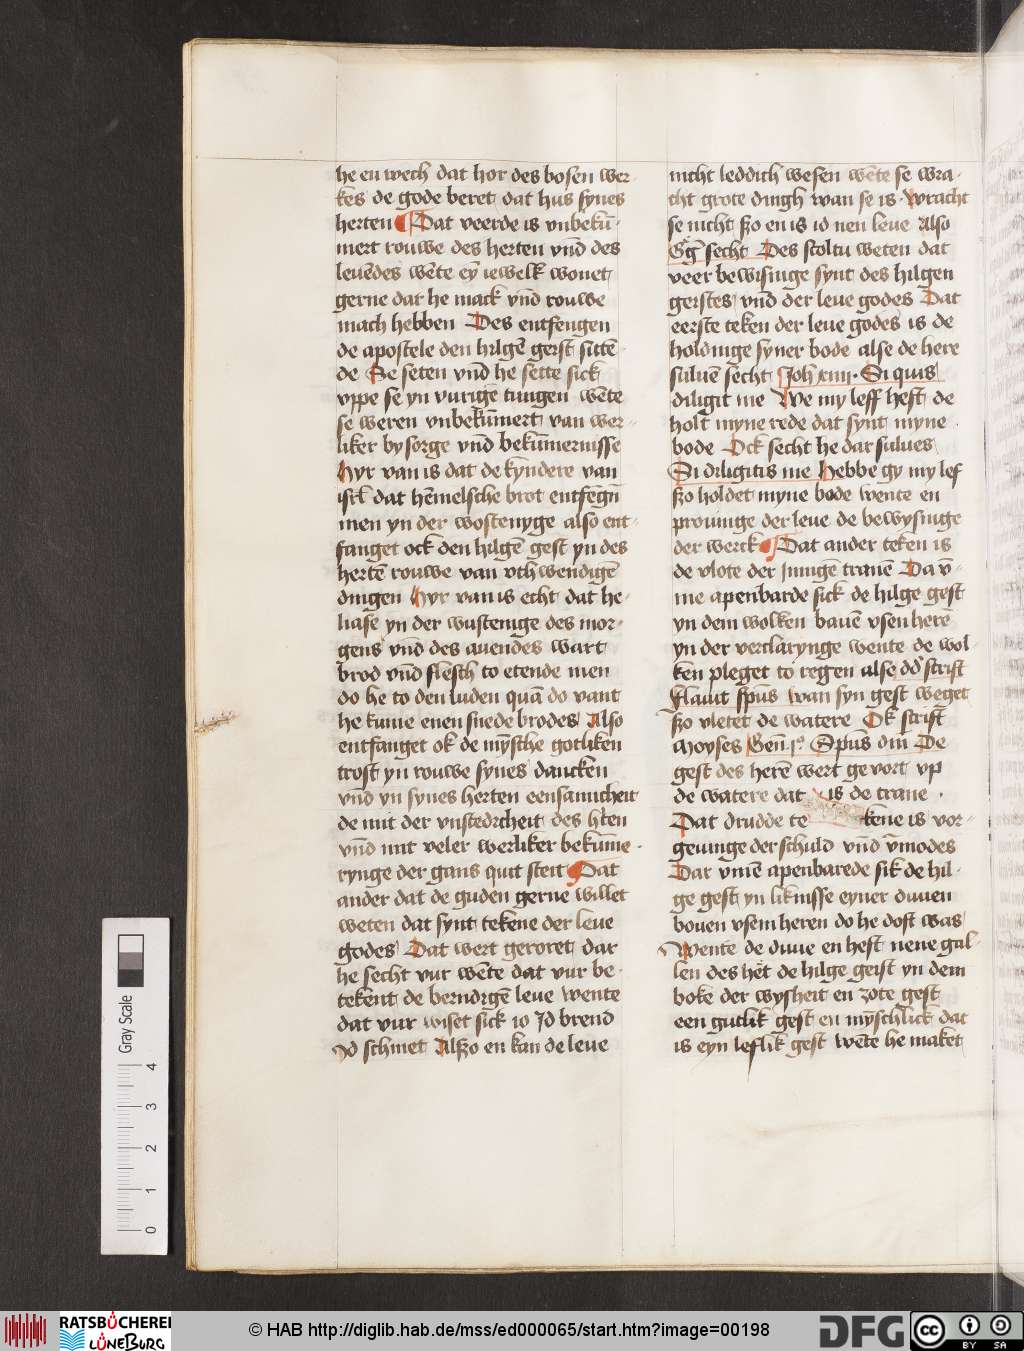 he en wech dat hor des bosen wer-
kes de gode beret dat hus synes
herten Dat veerde is vnbekū-
mert rouwe des herten vnd des
leuēdes wēte eyn iewelk wonet
gerne dat he mack vnd rouwe
mach hebben Des entfengen
de apostele den hilgē geist sittē-
de Se seten vnd he sette sick
vppe se yn vurigē tungen wēte
se weren vnbekūmert van wer-
liker bysorge vnd bekūmernisse
Hyr van is dat de kyndere van
isrl dat hēmelsche brot entfēgn
men yn der wostenyge also ent-
fanget ock den hilgē gest yn des
hertē rouwe van vthwendigē
dingen Hyr van is echt dat he-
liase yn der wustenige des mor-
gens vnd des auendes wart
brod vnd flesch to etende men
do he to den luden quā do vant
he kume enen snede brodes Also
entfanget ok de mȳsche gotliken
trost yn rouwe synes dancken
vnd yn synes herten eensamicheit
de mit der vnstedicheit des hten
vnd mit veler werliker bekūme-
rynge der gans quit steit Dat
ander dat de guden gerne willet
weten dat synt tekene der leue
godes Dat wert geroret dar
he secht vur wēte dat vur be-
tekent de bernirgē leue wente
dat vur wiset sick io Id brend
Id schinet Alszo en kan de leue
nicht leddich wesen wēte se wra-
cht grote dingh wan se is wracht
se nicht szo en is id nen leue Also
Gg secht Des scoltu weten dat
veer bewisinge synt des hilgen
geistes vnd der leue godes Dat
eerste teken der leue godes is de
holdinge syner bode alse de here
suluē secht Joh xiiij Si quis
diligit me We my leff hest de
holt myne rede dat synt myne
bode Ock secht he dar sulues
Si diligitis me Hebbe gy my lef
szo holdet myne bode wente en
prouinge der leue de bewysinge
der werck Dat ander teken is
de vlote der Innigē tranē Da v-
me apenbarde sick de hilge gest
yn dem wolken bauē vsen herē
yn der verclarynge wente de wol-
ken pleget to regen alse dd scrift
Flauit spus wan syn gest weget
szo vletet de watere Ok scrift
Moyses Gen j Spus dm De
gest des herē wert ge vort vp
de watere dat is de trane
Dat drudde te kene is vor-
geuinge der schuld vnd v̄modes
Dar vmē apenbarede sik de hil-
ge gest yn liknisse eyner duuen
bouen vsem heren do he doft was
Wente de duue en heft nene gal-
len des het de hilge geist yn dem
boke der wysheit en zote gest
een gutlik gest en mȳschlick dat
is eyn leflik gest wēte he maket
Gray Scale
4
3
2
1
0
RATSBÜCHEREI
LÜNEBURG
© HAB http://diglib.hab.de/mss/ed000065/start.htm?image=00198
DFG
cc BY SA